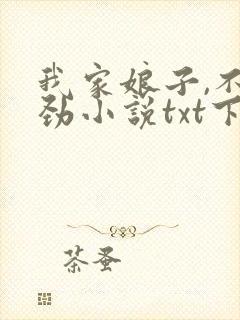 我家娘子,不
劲小说txt下
茶蚤